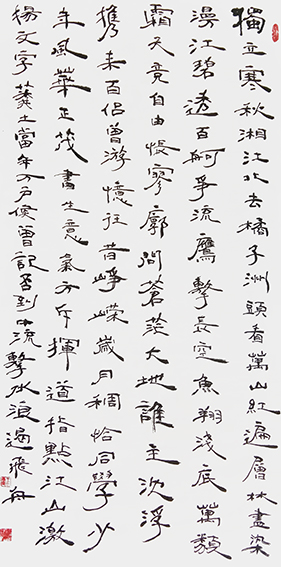 獨立寒秋湘江北去橘子洲頭看萬山紅遍層林盡染
漫江碧透百舸爭流鷹擊長空魚翔淺底萬類
霜天竟自由悵寥廓問蒼茫大地誰主沈浮
携來百侶曾游憶往昔崢嶸歲月稠恰同學少
年風華正茂書生意氣方斥揮遒指點江山激
揚文字糞土當年万户侯曾記否到中流擊水浪遏飛舟